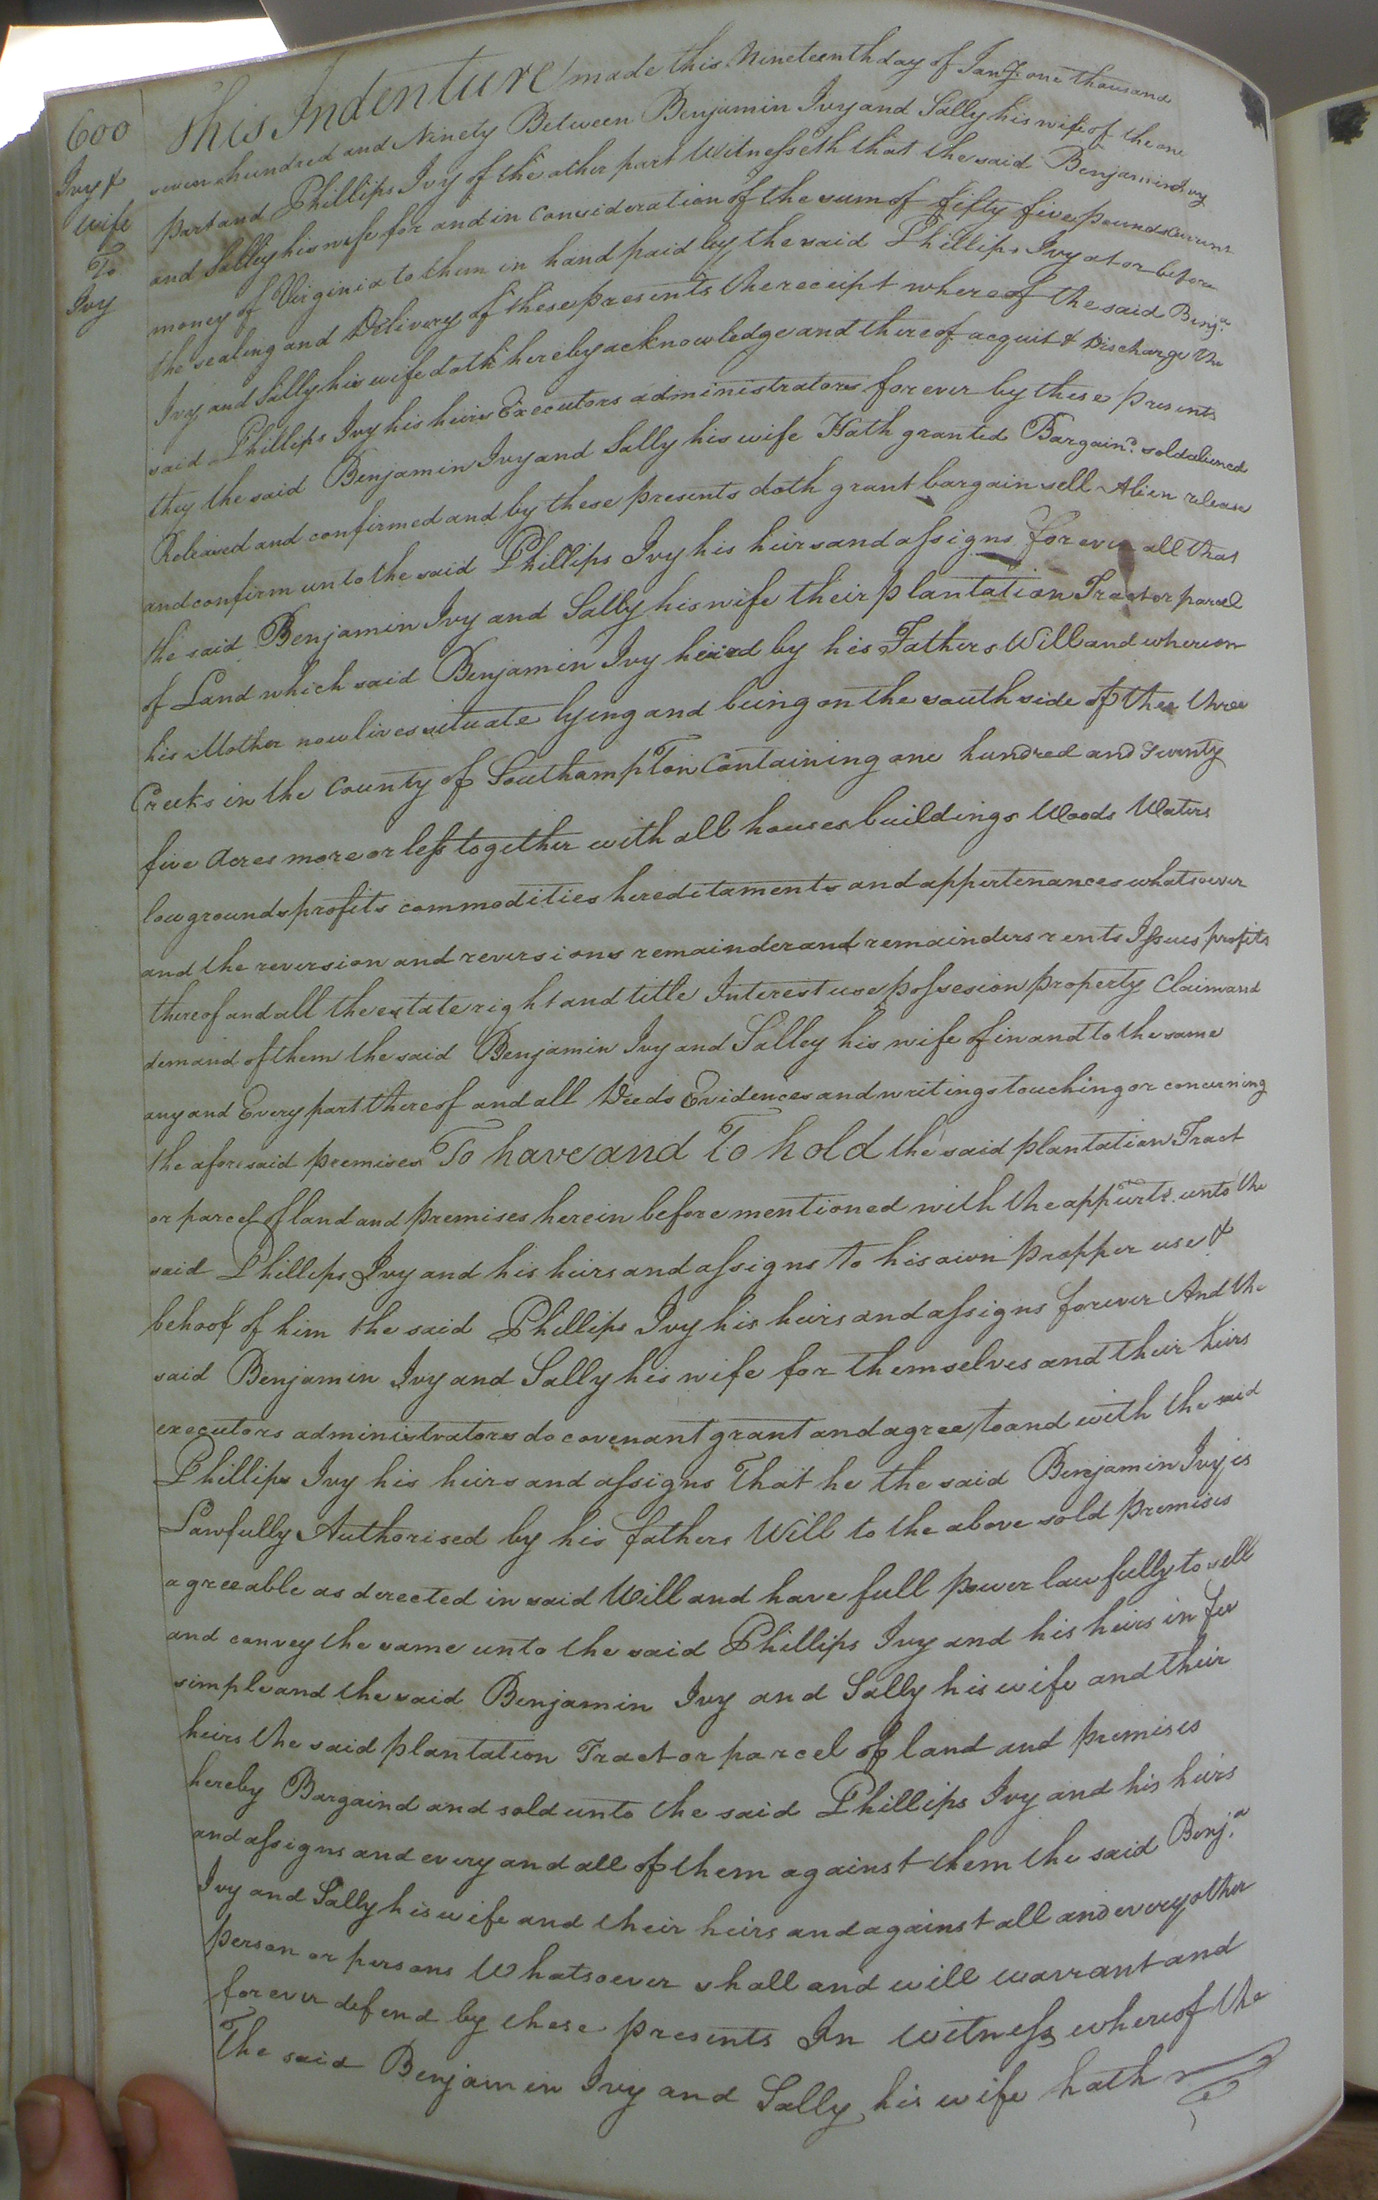 600
Ivy &
wife
To
Ivy
This Indenture made this Nineteenth day of Jany. one thousand
seven hundred and Ninety Between Benjamin Ivy and Sally his wife of the one
part and Phillips Ivy of the other part Witnesseth that the said Benjamin Ivy
and Salley his wife for and in consideration of the sum of fifty five pounds Current
money of Virginia to them in hand paid by the said Phillips Ivy at or before
the sealing and Delivery of these presents the receipt whereof the said Benja.
Ivy and Sally his wife doth hereby acknowledge and thereof acquit & Discharge the
said Phillips Ivy his heirs Executors administrators forever by these presents
they the said Benjamin Ivy and Sally his wife Hath granted Bargaind. sold aliened
Released and confirmed and by these presents doth grant bargain sell Alien release
and confirm unto the said Phillips Ivy his heirs and assigns forever all that
the said Benjamin Ivy and Sally his wife their plantation Tract or parcel
of Land which said Benjamin Ivy heird by his Fathers Will and whereon
his Mother now lives situate lying and being on the south side of the three
Creeks in the County of Southampton Containing one hundred and Twenty
five Acres more or less together with all houses buildings Woods Waters
low grounds profits commodities hereditaments and appertenances whatsoever
and the reversion and reversions remainder and remainders rents Issues profits
thereof and all the estate right and title Interest use possesion property Claim and
demand of them the said Benjamin Ivy and Salley his wife of in and to the same
any and Every part thereof and all Deeds Evidences and writings touching or concerning
the aforesaid premises To have and To hold the said plantation Tract
or parcel of land and premises herein before mentioned with the appurts. unto the
said Phillips Ivy and his heirs and assigns to his own propper use &
behoof of him the said Phillips Ivy his heirs and assigns forever And the
said Benjamin Ivy and Sally his wife for themselves and their heirs
executors administrators do covenant grant and agree to and with the said
Phillips Ivy his heirs and assigns that he the said Benjamin Ivy is
Lawfully Authorised by his fathers Will to the above sold premises
agreeable as derected in said Will and have full power lawfully to sell
and convey the same unto the said Phillips Ivy and his heirs in fee
simple and the said Benjamin Ivy and Sally his wife and their
heirs the said plantation Tract or parcel of land and premises
hereby Bargaind and sold unto the said Phillips Ivy and his heirs
and assigns and every and all of them against them the said Benja.
Ivy and Sally his wife and their heirs and against all and every other
person or persons Whatsoever shall and will warrant and
forever defend by these presents In witness whereof the
The said Benjamin Ivy and Sally his wife hath